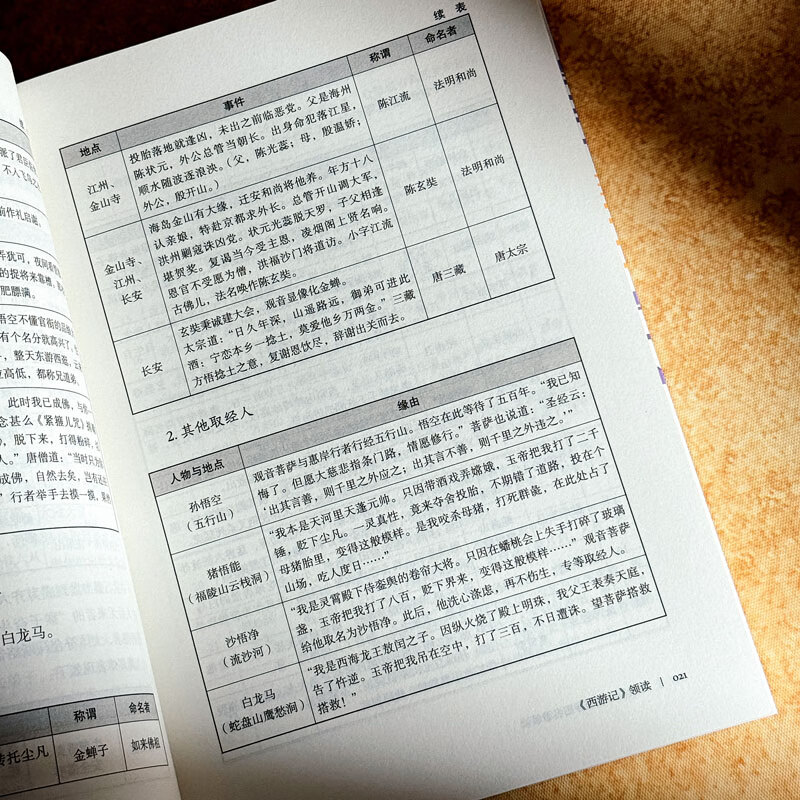 不懂官衔的品
有个名分就高兴了
整天东游西逛
高低，都称兄道弟
此时我已成佛，与
念甚么《紧箍儿咒》
脱下来，打得粉碎
人。”唐僧道：“当时只
成佛，自然去矣，岂有
”行者举手去摸一摸，
白龙马。
称谓
命名者
转托尘凡
金蝉子
如来佛祖
续 表
地点
事件
称谓
命名者
江州、
金山寺
投胎落地就逢凶，未出之前临恶党。父是海州
陈状元，外公总管当朝长。出身命犯落江星，
顺水随波逐浪泱。（父，陈光蕊；母，殷温娇；
外公，殷开山。）
陈江流
法明和尚
金山寺、
江州、
长安
海岛金山有大缘，迁安和尚将他养。年方十八
认亲娘，特赴京都求外长。总管开山调大军，
洪州剿寇诛凶党。状元光蕊脱天罗，子父相逢
堪贺奖。复谒当今受主恩，凌烟阁上贤名响。
恩官不受愿为僧，洪福沙门将道访。小字江流
古佛儿，法名唤作陈玄奘。
陈玄奘
法明和尚
长安
玄奘秉诚建大会，观音显像化金蝉
太宗道：“日久年深，山遥路远，御弟可进此
酒：宁恋本乡一捻土，莫爱他乡万两金。”三藏
方悟捻土之意，复谢恩饮尽，辞谢出关而去。
唐三藏
唐太宗
2. 其他取经人
人物与地点
缘由
孙悟空
（五行山）
观音菩萨与惠岸行者行经五行山。悟空在此等待了五百年。“我已知
悔了。但愿大慈悲指条门路，情愿修行。”菩萨也说道：“圣经云：
‘出其言善，则千里之外应之；出其言不善，则千里之外违之。’”
猪悟能
（福陵山云栈洞）
“我本是天河里天蓬元帅。只因带酒戏弄嫦娥，玉帝把我打了二千
锤，贬下尘凡。一灵真性，竟来夺舍投胎，不期错了道路，投在个
母猪胎里，变得这般模样。是我咬杀母猪，打死群彘，在此处占了
山场，吃人度日……”
沙悟净
（流沙河）
“我是灵霄殿下侍銮舆的卷帘大将。只因在蟠桃会上失手打碎了玻璃
盏，玉帝把我打了八百，贬下界来，变得这般模样……”观音菩萨
给他取名为沙悟净。此后，他洗心涤虑，再不伤生，专等取经人。
白龙马
（蛇盘山鹰愁涧）
“我是西海龙王敖闰之子。因纵火烧了殿上明珠，我父王表奏天庭，
告了忤逆。玉帝把我吊在空中，打了三百，不日遭诛。望菩萨搭救
搭救！”
《西游记》领读 | 021